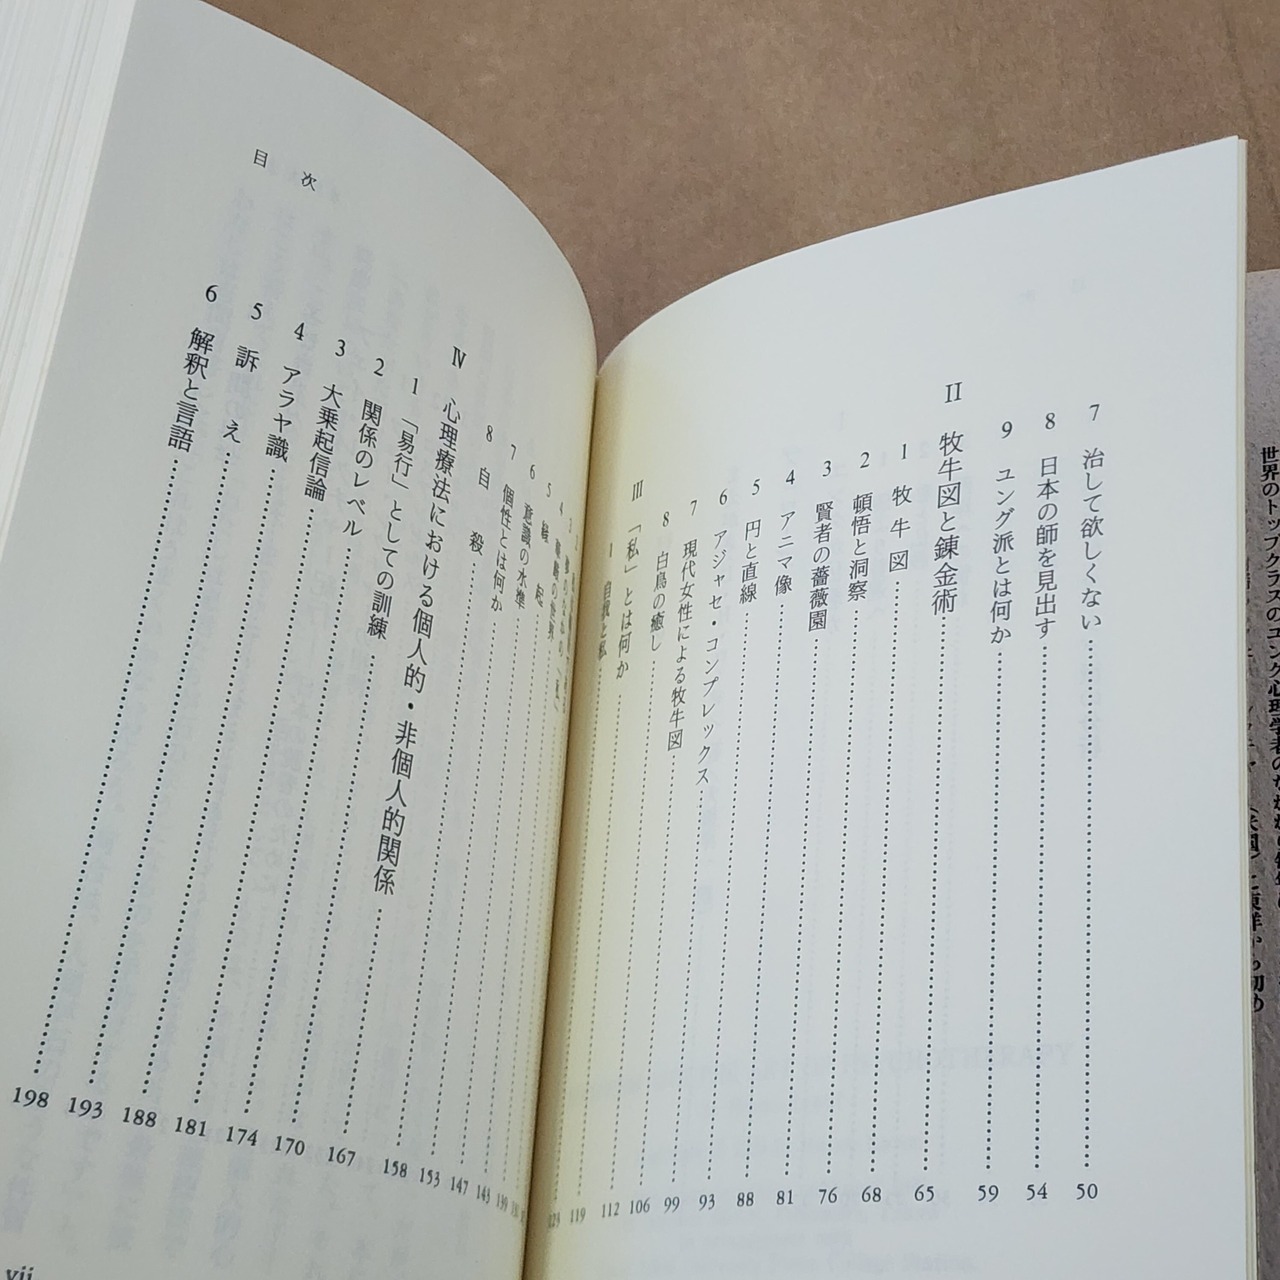 7 治して欲しくない 50
8 日本の師を見出す 54
9 ユング派とは何か 59
II 牧牛図と錬金術 65
1 牧牛図 68
2 頓悟と洞察 76
3 賢者の薔薇園 81
4 アニマ像 88
5 円と直線 93
6 アジャセ・コンプレックス 99
7 現代女性による牧牛図 106
8 白鳥の癒し 112
III 「私」とは何か 119
1 自我と私
5 縁起
6 意識の水準 143
7 個性とは何か 147
8 自殺 153
IV 心理療法における個人的・非個人的関係 158
1 「易行」としての訓練 167
2 関係のレベル 170
3 大乗起信論 174
4 アラヤ識 181
5 訴え 188
6 解釈と言語 193
198
目次
vii
世界のトップクラスのユング心理学者の